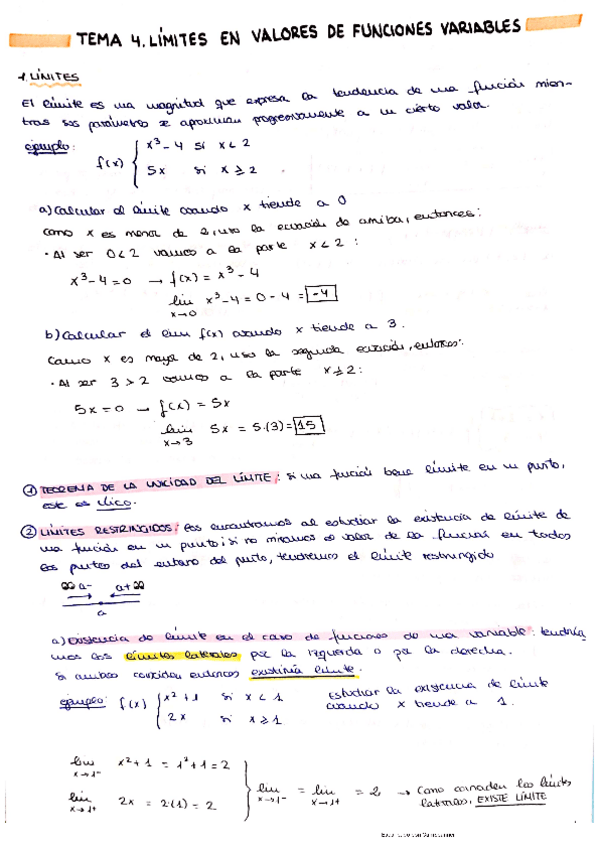 TEMA 4. LÍMITES EN VALORES DE FUNCIONES VARIABLES
1. LÍMITES
El límite es una magnitud que expresa la tendencia de una función mien-
tras sus parámetros se aproximan progresivamente a un cierto valor.
ejemplo:
f(x) { x³-4 si x<2
5x si x≥2
a) Calcular el límite cuando x tiende a 0
Como x es menor de 2, uso la ecuación de arriba, entonces:
· Al ser 0<2 vamos a la parte x<2:
x³-4=0 → f(x) = x³-4
lim x³-4 = 0-4 = -4
x→0
b) Calcular el lim f(x) cuando x tiende a 3.
Como x es mayor de 2, uso la segunda ecuación, entonces:
· Al ser 3>2 vamos a la parte x≥2:
5x=0 → f(x) = 5x
lim 5x = 5·(3) = 15
x→3
① TEOREMA DE LA UNICIDAD DEL LÍMITE: si una función tiene límite en un punto,
este es único.
② LÍMITES RESTRINGIDOS: los encontramos al estudiar la existencia de límite de
una función en un punto; si no miramos el valor de la función en todos
los puntos del entorno del punto, tendremos el límite restringido
∞ a- a+ ∞
a
a) existencia de límite en el caso de funciones de una variable: tendría
mos los límites laterales por la izquierda o por la derecha.
Si ambos coinciden entonces existiría límite.
ejemplo: f(x) { x²+1 si x<1 Estudiar la existencia de límite
2x si x≥1 cuando x tiende a 1.
lim x²+1 = 1²+1 = 2
x→1⁻
lim = lim = 2 → Como coinciden los límites
x→1⁻ x→1⁺ laterales, EXISTE LÍMITE
lim 2x = 2(1) = 2
x→1⁺